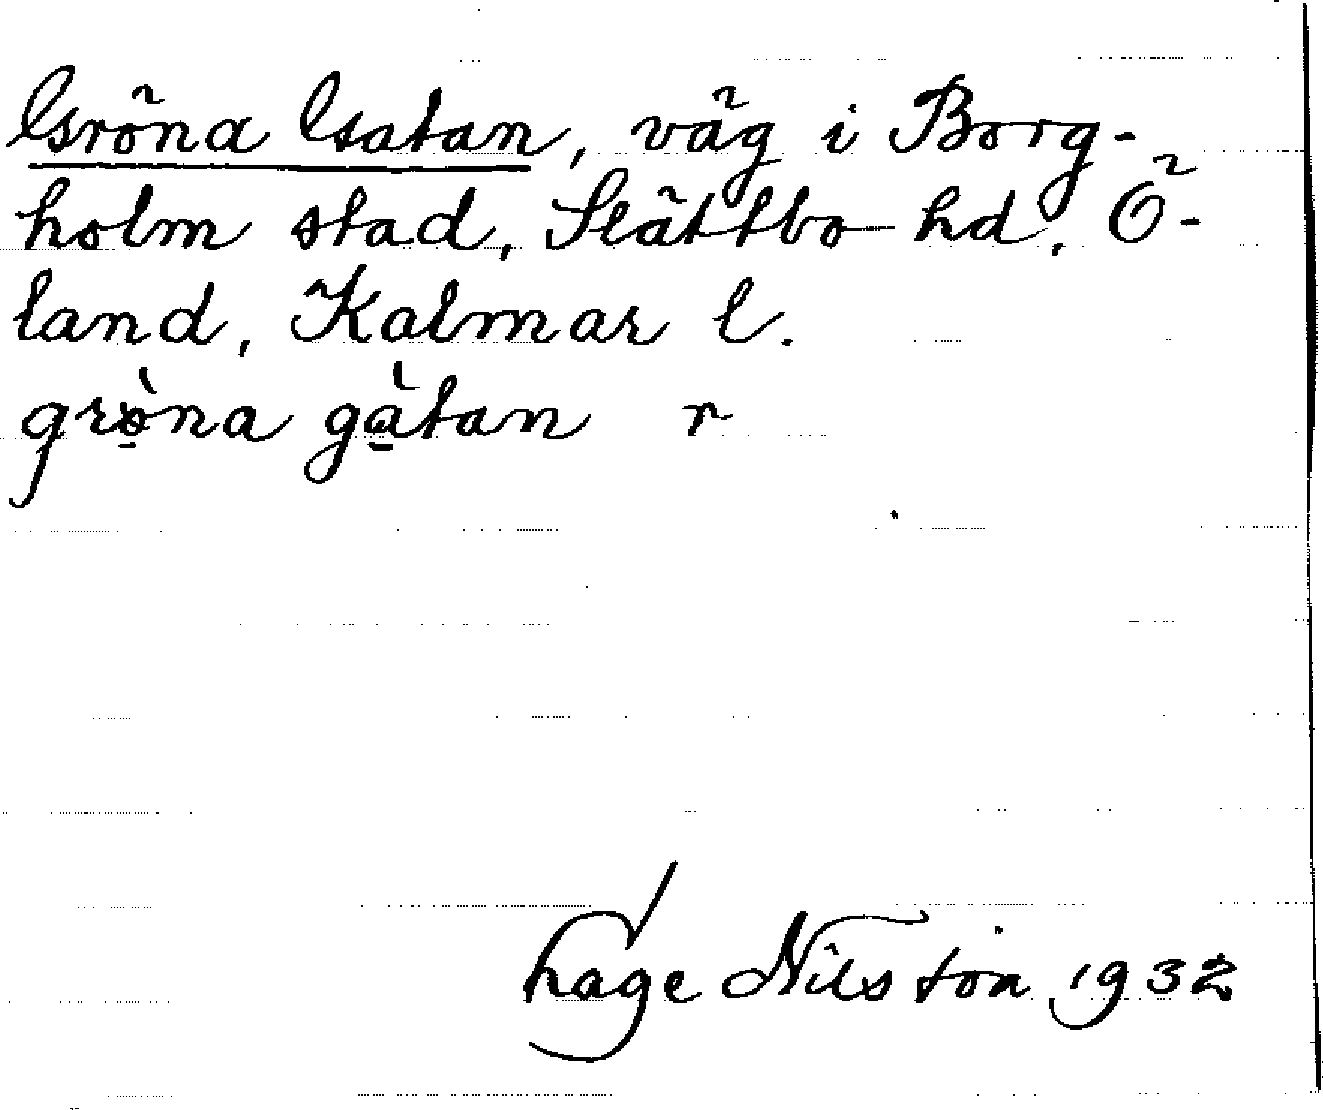 Gröna Gatan, väg i Borg-
holm stad, Slättbo hd, Ö-
land, Kalmar l.
grö̀na gàtan r
Hage Nilsson 1932